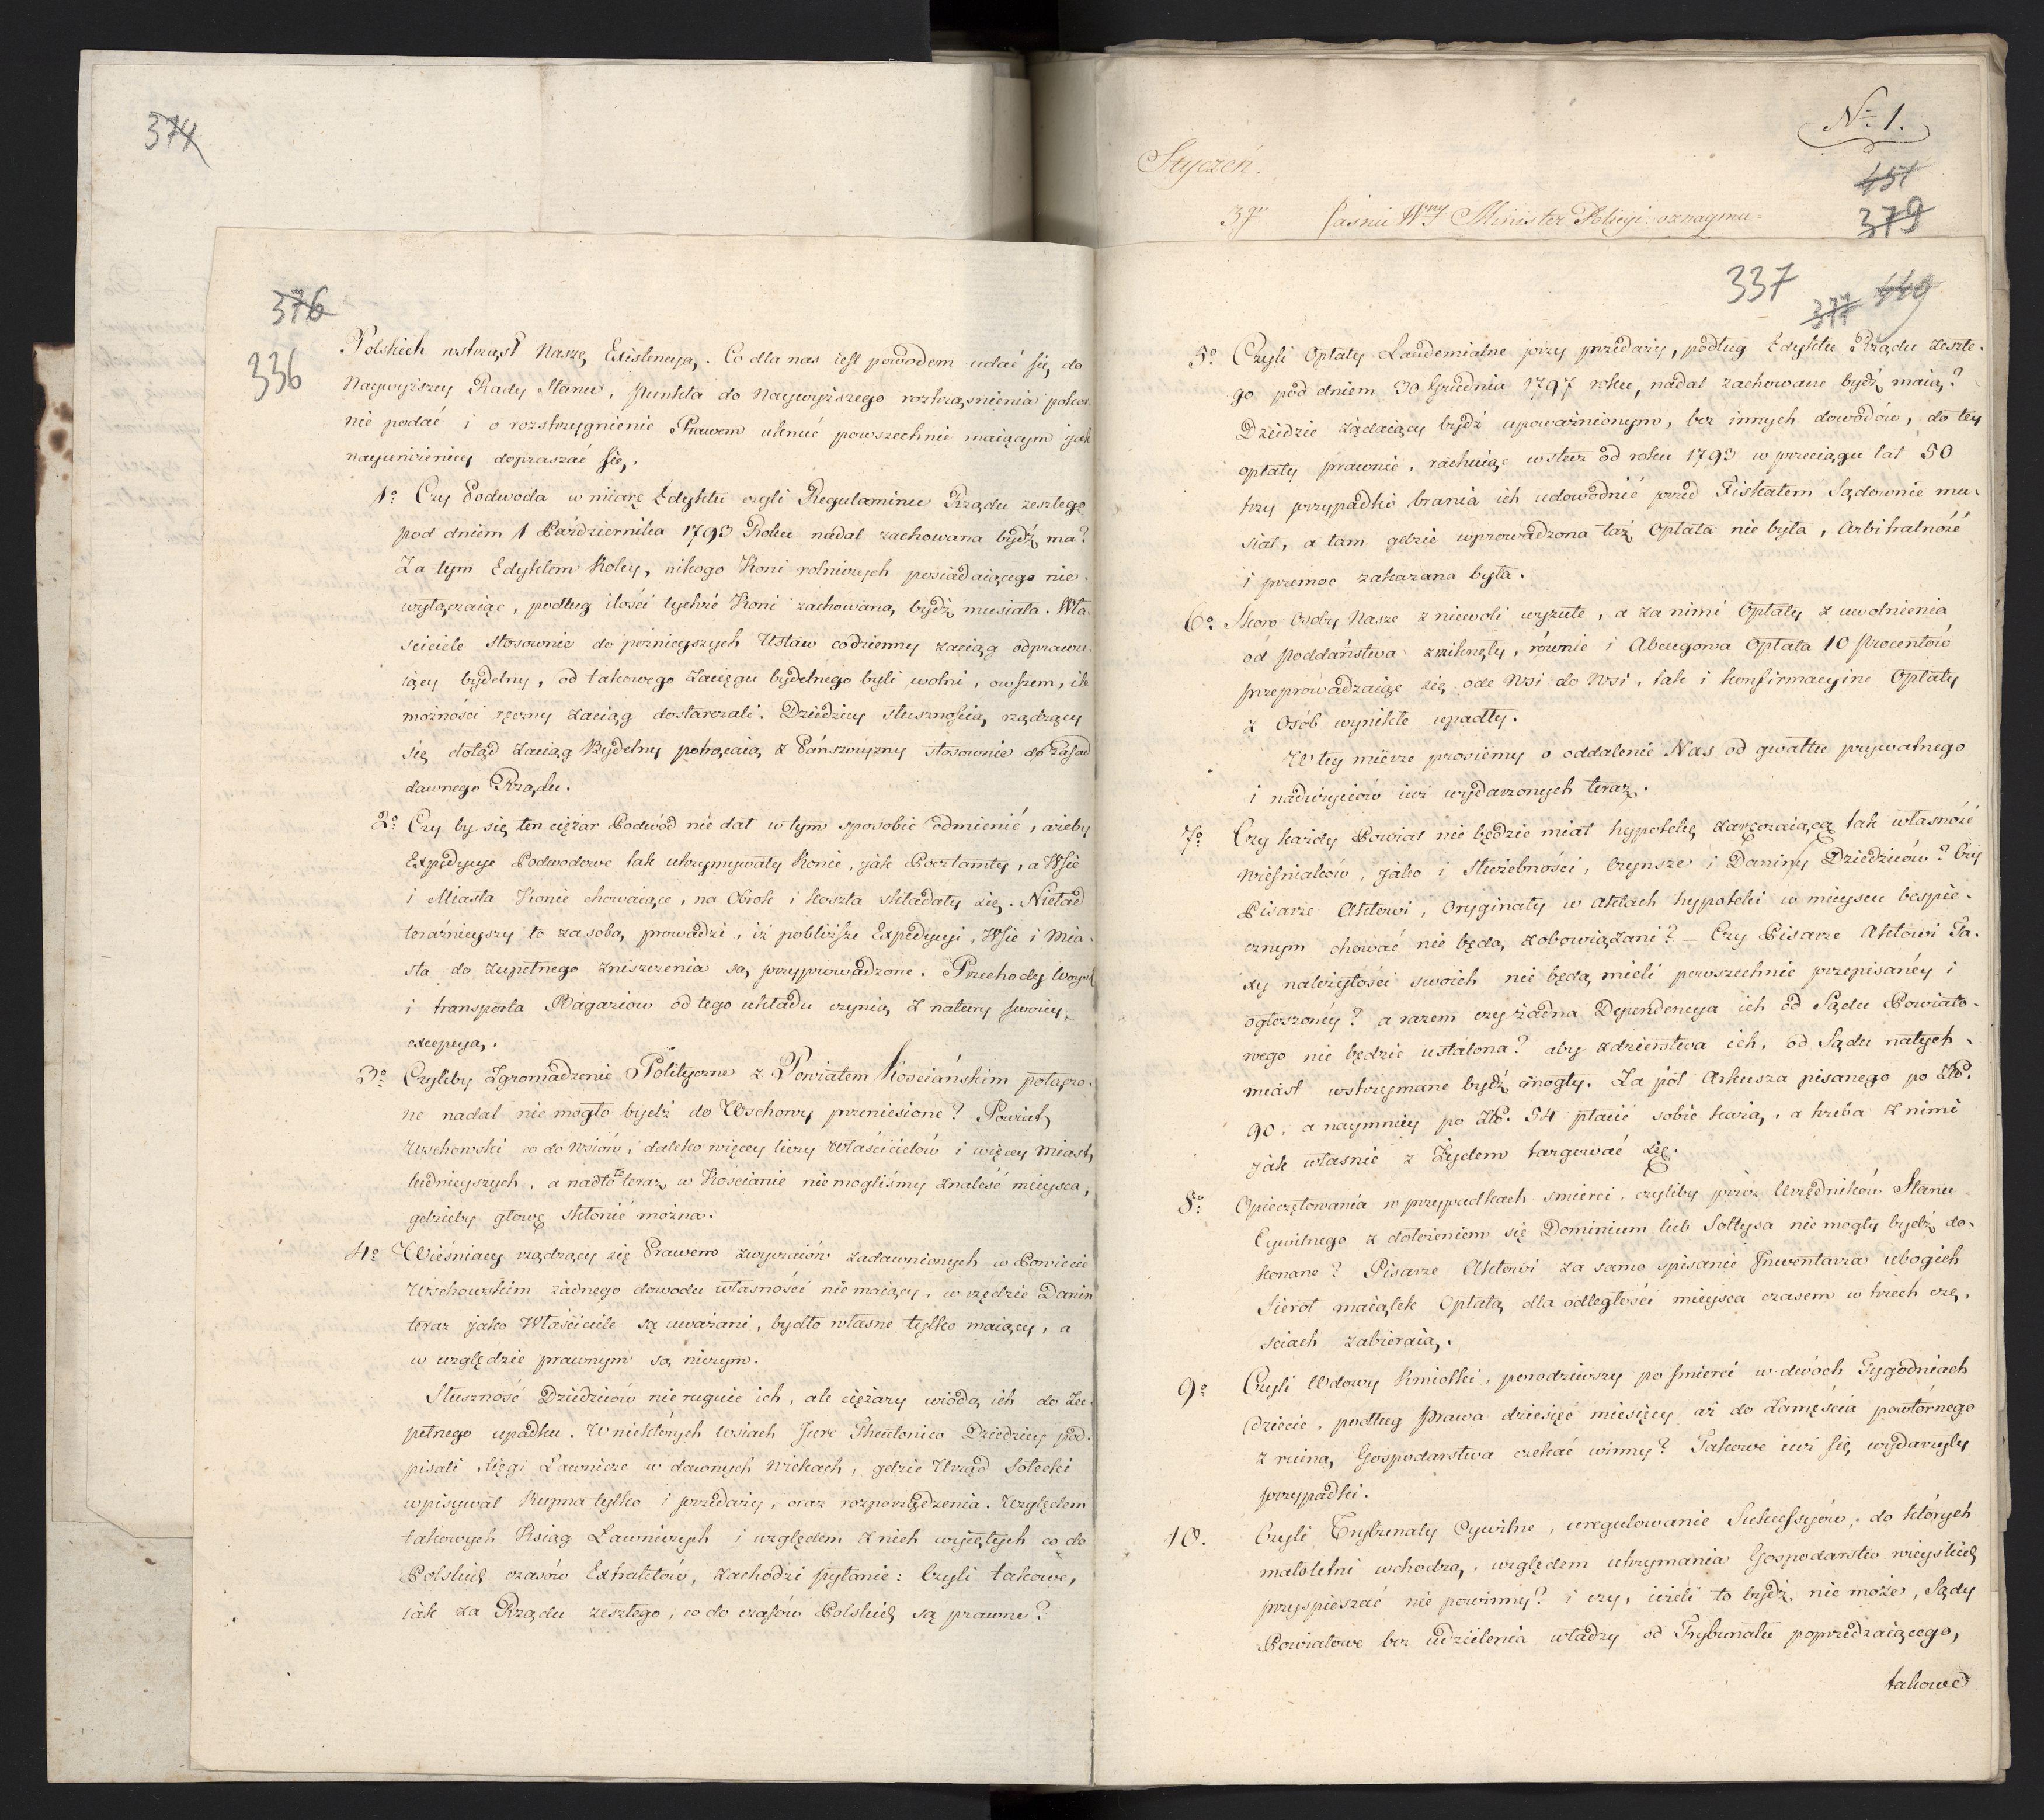 374
376
336
Polskich wstrząsł Naszę Existencyą. Co dla nas iest powodem udać się do
Naywyższey Rady Stanu, Punkta do Naywyższego roztrząśnienia pokor-
nie podać i o rozstrzygnienie Prawem ukruć powszechnie maiącym iak
nayuniżeniey dopraszać się.
1o Czy Podwoda w miarę Edyktu czyli Regulaminu Rządu zeszłego
pod dniem 1 Października 1793 Roku nadal zachowana bydź ma?
Za tym Edyktem Koley, nikogo Koni rolniczych posiadaiącego nie-
wyłączaiąc, podług ilości tychże Koni zachowaną bydź musiała. Wła-
ściciele stosownie do pozniejszych Ustaw codzienny zaciąg odprawu-
iący bydelny, od takowego Zaciągu bydelnego byli wolni, owszem, ile
możności ręczny Zaciąg dostarczali. Dziedzicy słusznością rządzący
się dotąd Zaciąg Bydelny potrącaią z Pańszczyzny stosownie do Zasad
dawnego Rządu.
2o Czy by się ten ciężar Podwód nie dał w tym sposobie odmienić, ażeby
Expedycye Podwodowe tak utrzymywały Konie, jak Pocztamty, a Wsie
i Miasta Konie chowaiące, na Obrok i koszta składały się. Nieład
teraźnieyszy to za sobą prowadzi, iż pobliższe Expedycyi, Wsie i Mia-
sta do zupełnego zniszczenia są przyprowadzone. Przechody Woysk
i transporta Magazinow od tego układu czynią z natury swoiey
excepcyą.
3o Czyliby Zgromadzenie Polityczne z Powiatem Kościańskim połączo-
ne nadal nie mogło bydź do Wschowy przeniesione? Powiat
Wschowski co do Wsiów, daleko więcey liczy Właścicielów i więcey Miast
ludnieyszych, a nadto to teraz w Kościanie nie mogliśmy znaleść mieysca,
gdzieby głowę skłonić można.
4o Wieśniacy rządzący się Prawem zwyczaiów zadawnionych w Powiecie
Wschowskim żadnego dowodu własności nie maiący, w rzędzie Danin
teraz jako Właściciele są uważani, bydło własne tylko maiący, a
w względzie prawnym są niczym.
Słuszność Dziedziców nie ruguie ich, ale ciężary wiodą ich do Zu-
pełnego upadku. W niektórych Wsiach Jure Theutonico Dziedzicy pod-
pisali Xięgi Ławnicze w dawnych Wiekach, gdzie Urząd Sołecki
wpisywał Kupna tylko i przedaży, oraz rozporządzenia. Względem
takowych Ksiąg Ławniczych i względem z nich wyiętych co do
Polskich czasów Extraktów, zachodzi pytanie: Czyli takowe,
iak za Rządu zeszłego, co do czasów Polskich są prawne?
No 1.
Styczeń.
451
379
3go Jaśnie Wny Minister Policyi oznaymu-
337
377 449
5o Czyli Opłaty Laudemialne przy przedaży, podług Edyktu Rządu zeszłe-
go pod dniem 30 Grudnia 1797 roku, nadal zachowane bydź maią?
Dziedzic żądaiący bydź upoważnionym, bez innych dowodów, do tey
opłaty prawnie, rachuiąc wstecz od roku 1793 w przeciągu lat 50
trzy przypadki brania ich udowodnić przed Fiskałem Sądownie mu-
siał, a tam gdzie wprowadzona taż Opłata nie była, Arbitralność
i przemoc zakazana była.
6o Skoro Osoby Nasze z niewoli wyzute, a za nimi Opłaty z uwolnienia
od Poddaństwa znikneły, równie i Abzugowa Opłata 10 Procentów
przeprowadzaiąc się ode Wsi do Wsi, tak i konfirmacyine Opłaty
z Osób wynikłe upadły.
W tey mierze prosiemy o oddalenie Nas od gwałtu prywatnego
i nadużyciów iuż wydarzonych teraz.
7o Czy każdy Powiat nie będzie miał hypotekę zaręczaiącą tak własność
Wieśniaków, jako i Służebności, Czynsze i Daniny Dziedziców? Czy
Pisarze Aktowi, Oryginały w Aktach hypoteki w mieyscu bespie-
cznym chować nie będą zobowiązani? – Czy Pisarze Aktowi Ta-
xy należytości swoich nie będą mieli powszechnie przepisaney i
ogłoszoney? a razem czy żadna Dependencya ich od Sądu Powiato-
wego nie będzie ustalona? aby zdzierstwa ich, od Sądu natych-
miast wstrzymane bydź mogły. Za pół Arkusza pisanego po Złp.
90. a naymniey po Złp. 54 płacić sobie każą, a trzeba z nimi
jak własnie z Żydem targować się.
8o Opieczętowania w przypadkach smierci, czyliby przez Urzędników Stanu
Cywilnego z dołożeniem się Dominium lub Sołtysa nie mogły bydź do-
konane? Pisarze Aktowi za samo spisanie Inwentarza ubogich
Sierot maiątek Opłatą dla odległości mieysca czasem w trzech czę-
sciach zabieraią.
9o Czyli Wdowy Kmiotki, porodziwszy po śmierci w dwóch Tygodniach
Dziecie, podług Prawa dziesięć miesięcy aż do Zamęścia powtórnego
z ruiną Gospodarstwa czekać winny? Takowe iuż się wydarzyły
przypadki.
10. Czyli Trybunały Cywilne, uregulowanie Sukcessyów, do których
małoletni wchodzą, względem utrzymania Gospodarstw wieyskich
przyspieszać nie powinny? i czy, ieżeli to bydź nie może, Sądy
Powiatowe bez udzielenia władzy od Trybunału poprzedzaiącego,
takowe